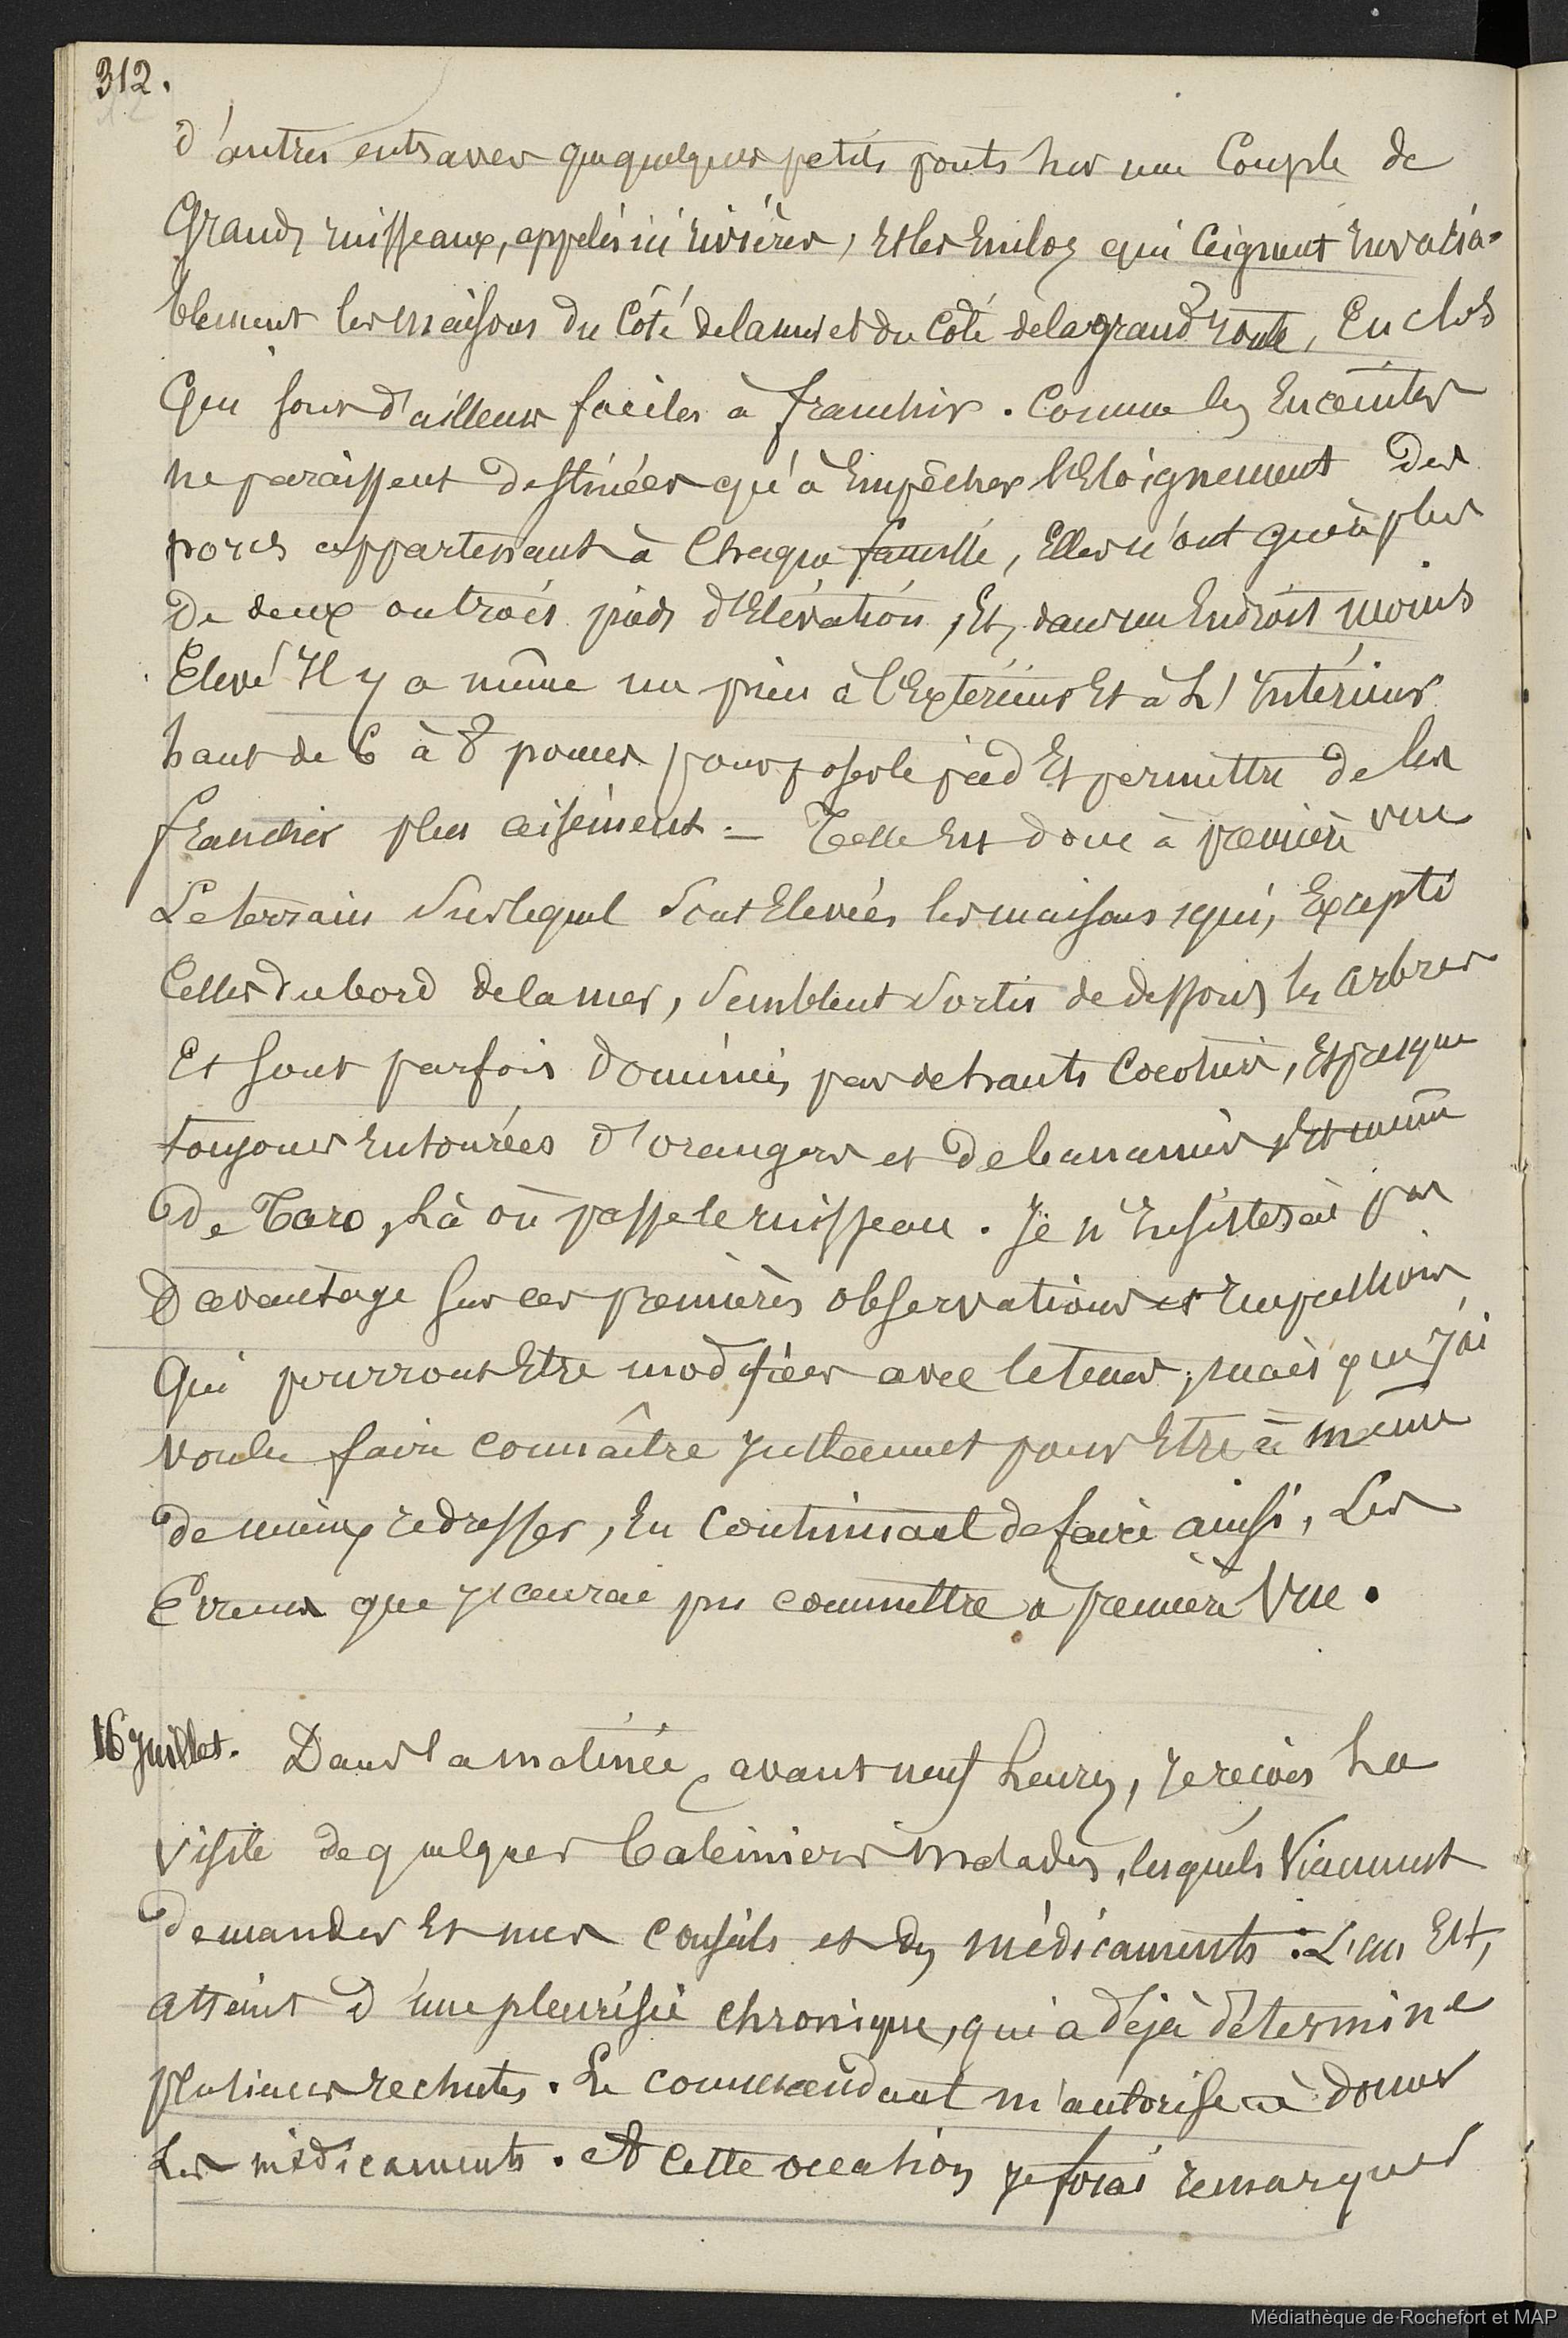 312.
d'autres entraves que quelques petits ponts sur une Couple de
Grands ruisseaux, appelés ici rivières, Et les Enclos qui Ceignent Invaria-
blement les maisons du Côté de la mer et du Côté de la grand route, Enclos
Qui sont d'ailleurs faciles à franchir. Comme les Enceintes
ne paraissent destinées qu'à Empêcher l'Eloignement des
porcs appartenant à Chaque famille, Elles n'ont guère plus
De deux ou trois pieds d'Elévation, Et, dans un Endroit moins
Elevé Il y a même un pieu à l'Extérieur Et à L'Intérieur
haut de 6 à 8 pouces pour poser le pied Et permettre de les
franchir plus aisément. — Telle Est donc à première vue
Le terrain Sur lequel Sont Elevées les maisons qui, Excepté
Celles du bord de la mer, Semblent Sortir de dessous les arbres
Et sont parfois dominées par de hauts Cocotiers, Et presque
toujours Entourées d'orangers et de bananiers Et même
De Taro, Là où passe le ruisseau. Je n'Insisterai pas
Davantage sur ces premières observations et Impressions
Qui pourront Etre modifiées avec le tems, mais que j'ai
voulu faire connaître Justement pour Etre à même
de mieux redresser, En Continuant de faire ainsi, Les
Erreurs que J'aurai pu commettre à première Vue.
16 Juillet. Dans la matinée, avant neuf heures, Je reçois La
Visite de quelques baleiniers malades, lesquels Viennent
Demander Et mes Conseils et des médicaments. L'un Est,
atteint d'une pleurésie chronique, qui a déjà déterminé
plusieurs rechutes. Le commandant m'autorise à donner
Les médicaments. A Cette occasion Je ferai remarquer
Médiathèque de Rochefort et MAP